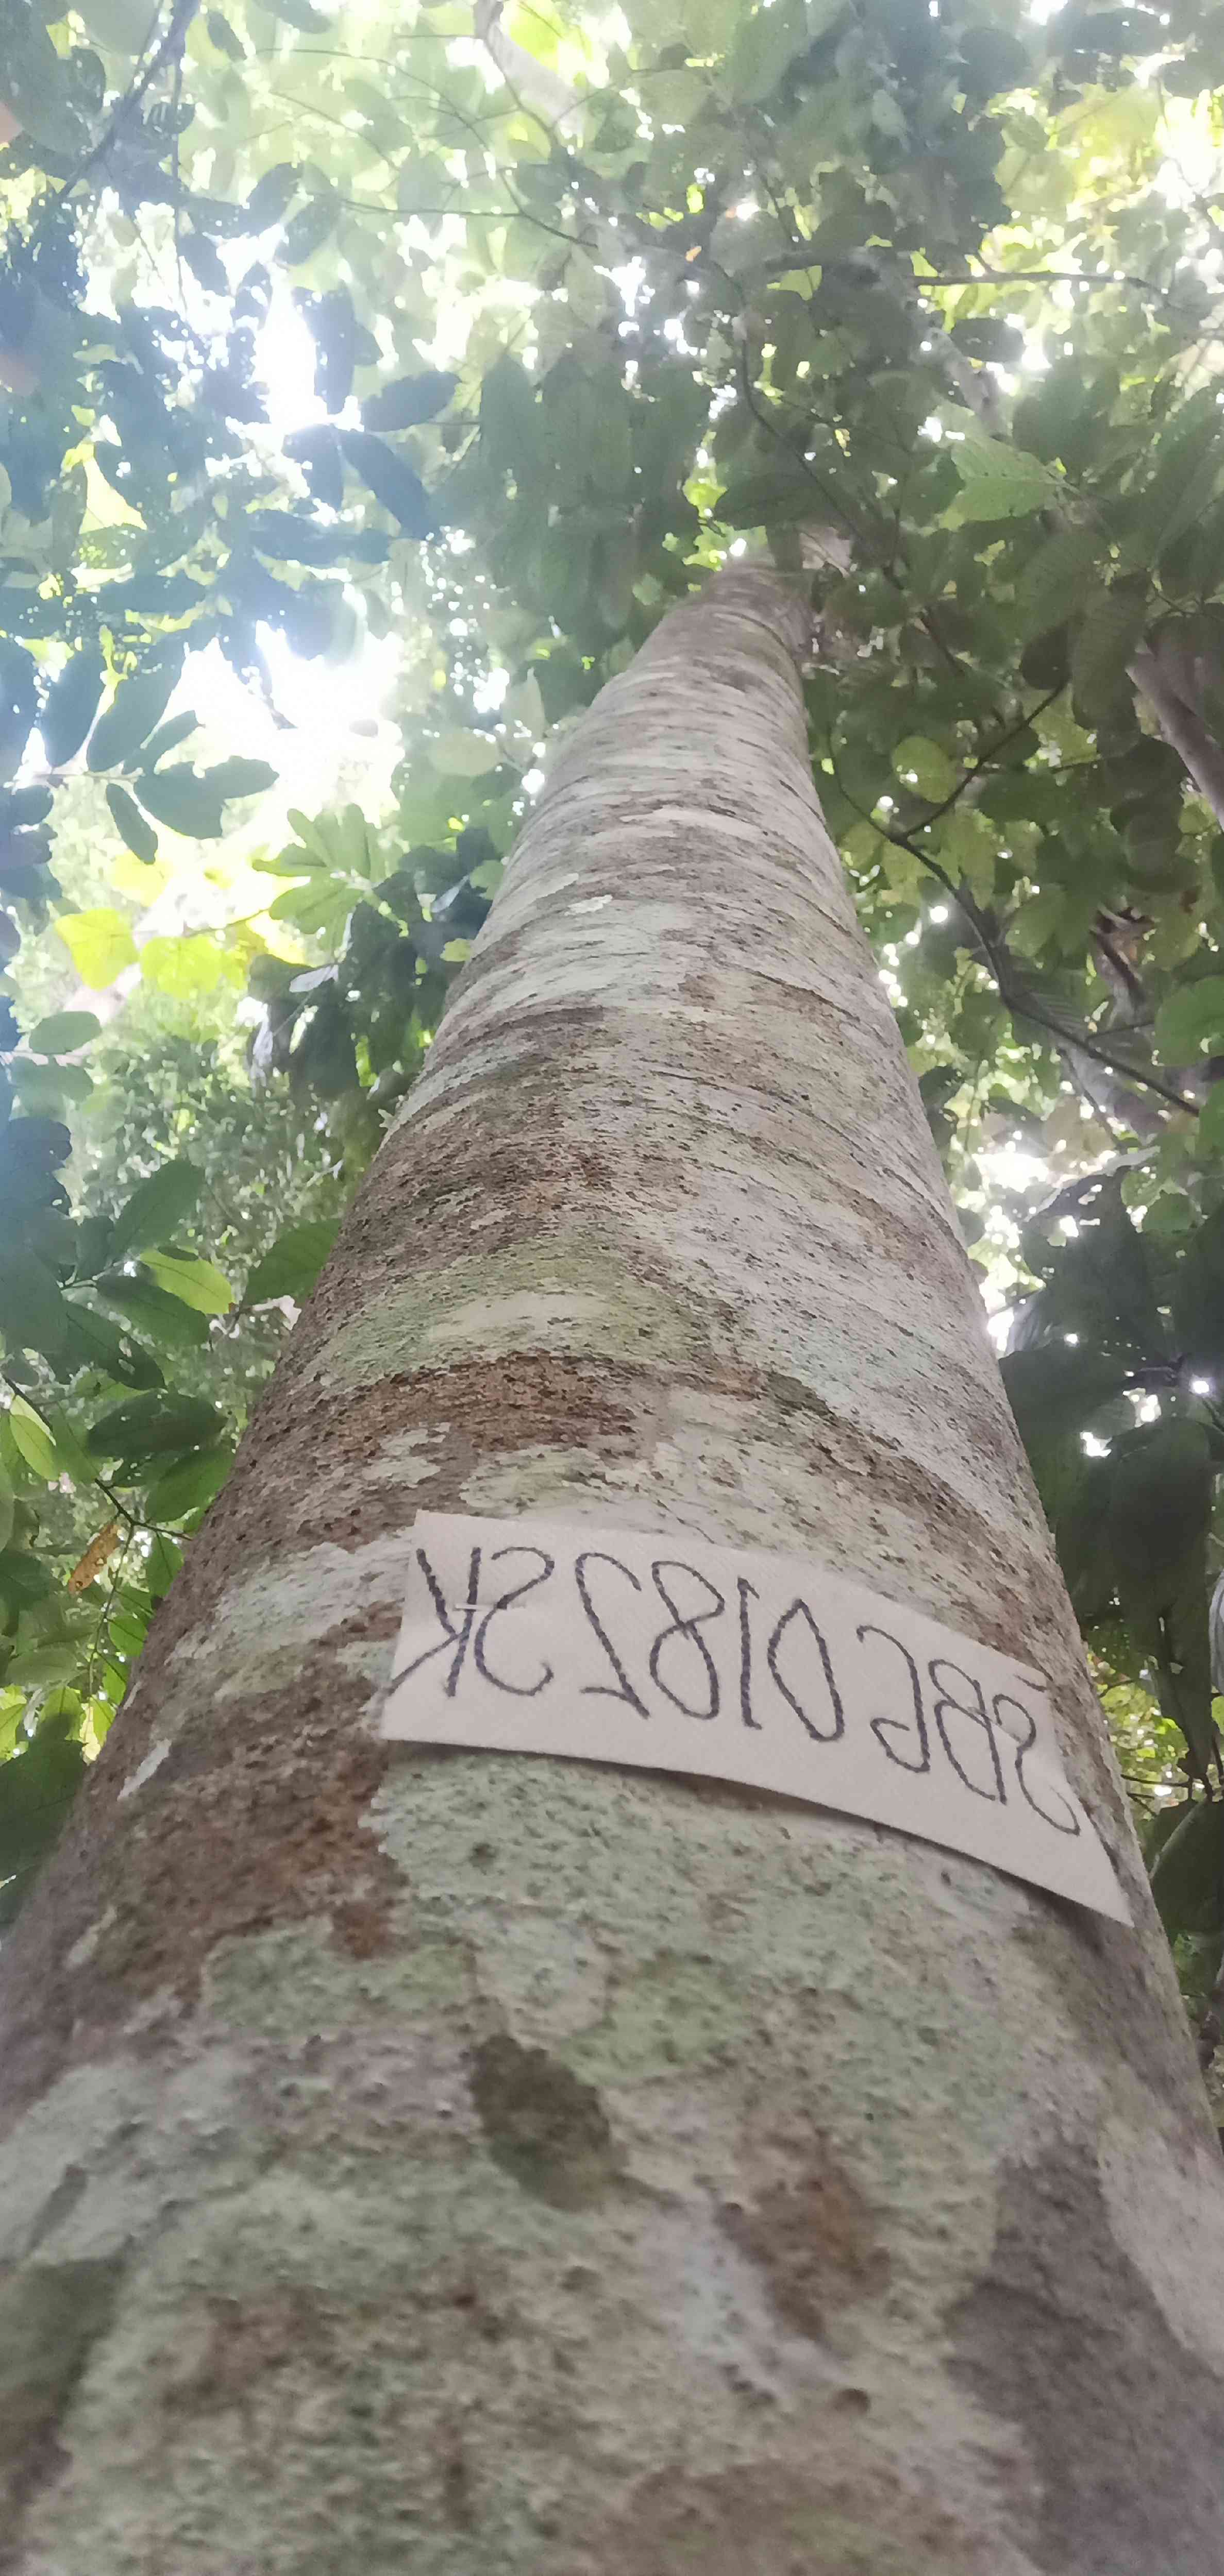 SBG 0182 SK